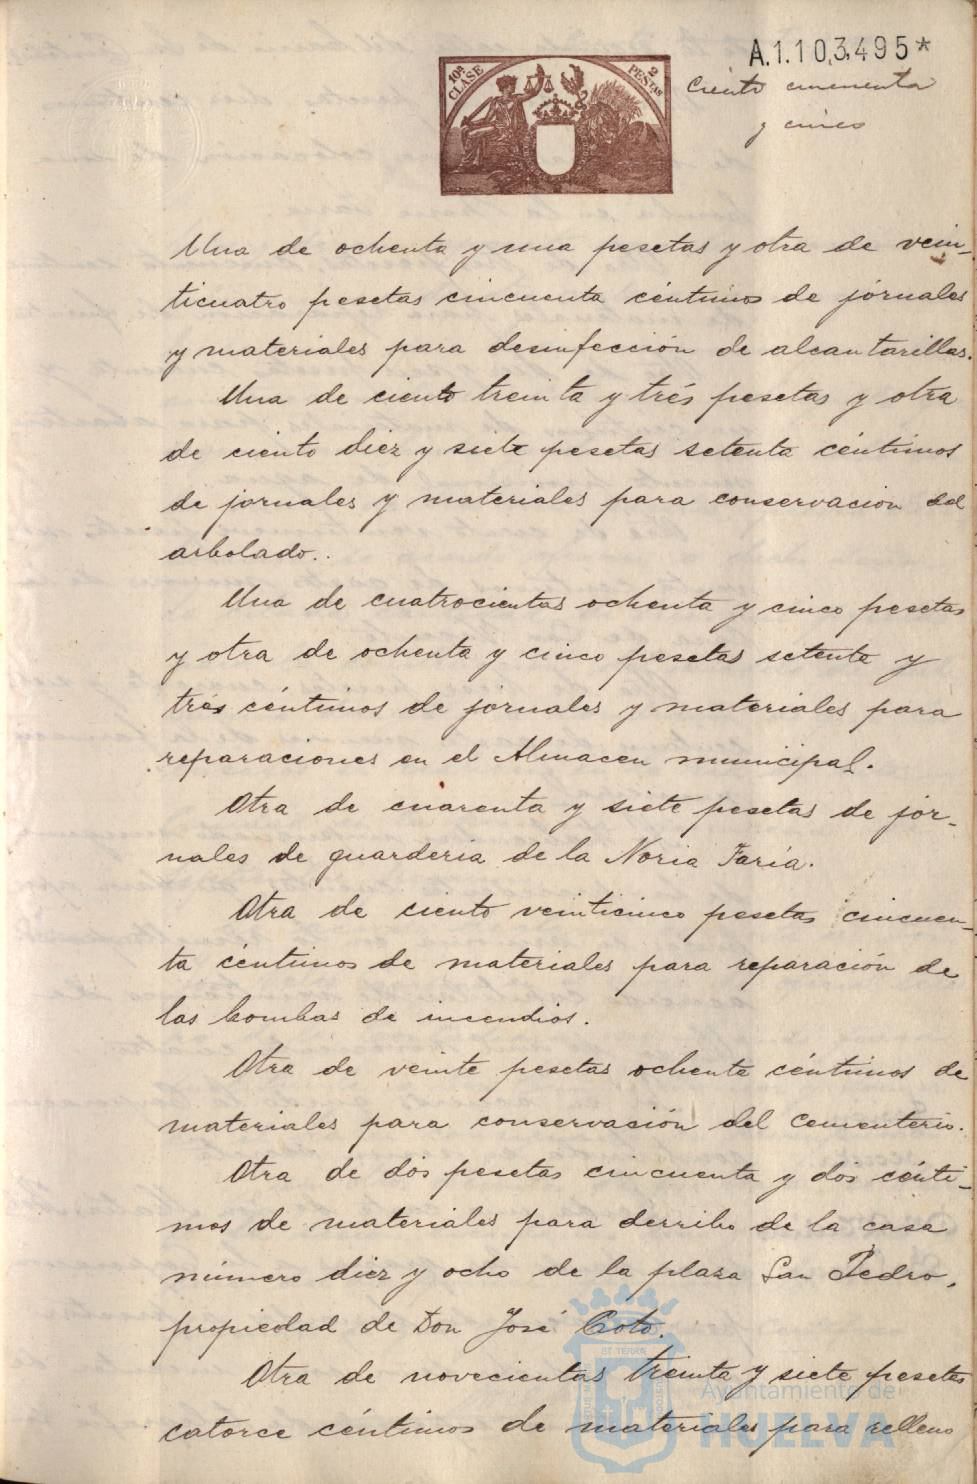 A.1.103,495*
10ª CLASE
2 PESTAS
Ciento cincuenta
y cinco
Una de ochenta y una pesetas y otra de vein-
ticuatro pesetas cincuenta céntimos de jornales
y materiales para desinfección de alcantarillas.
Una de ciento treinta y trés pesetas y otra
de ciento diez y siete pesetas setenta céntimos
de jornales y materiales para conservacion del
arbolado..
Una de cuatrocientas ochenta y cinco pesetas
y otra de ochenta y cinco pesetas setenta y
trés céntimos de jornales y materiales para
reparaciones en el Almacen municipal.
Otra de cuarenta y siete pesetas de jor-
nales de guarderia de la Noria Faría.
Otra de ciento veinticinco pesetas cincuen-
ta céntimos de materiales para reparación de
las bombas de incendios.
Otra de veinte pesetas ochenta céntimos de
materiales para conservasión del Cementerio.
Otra de dos pesetas cincuenta y dos cénti-
mos de materiales para derribo de la casa
número diez y ocho de la plaza San Pedro,
propiedad de Don José Coto.
Otra de novecientas treinta y siete pesetas
catorce céntimos de materiales para relleno
Ayuntamiento de
HUELVA